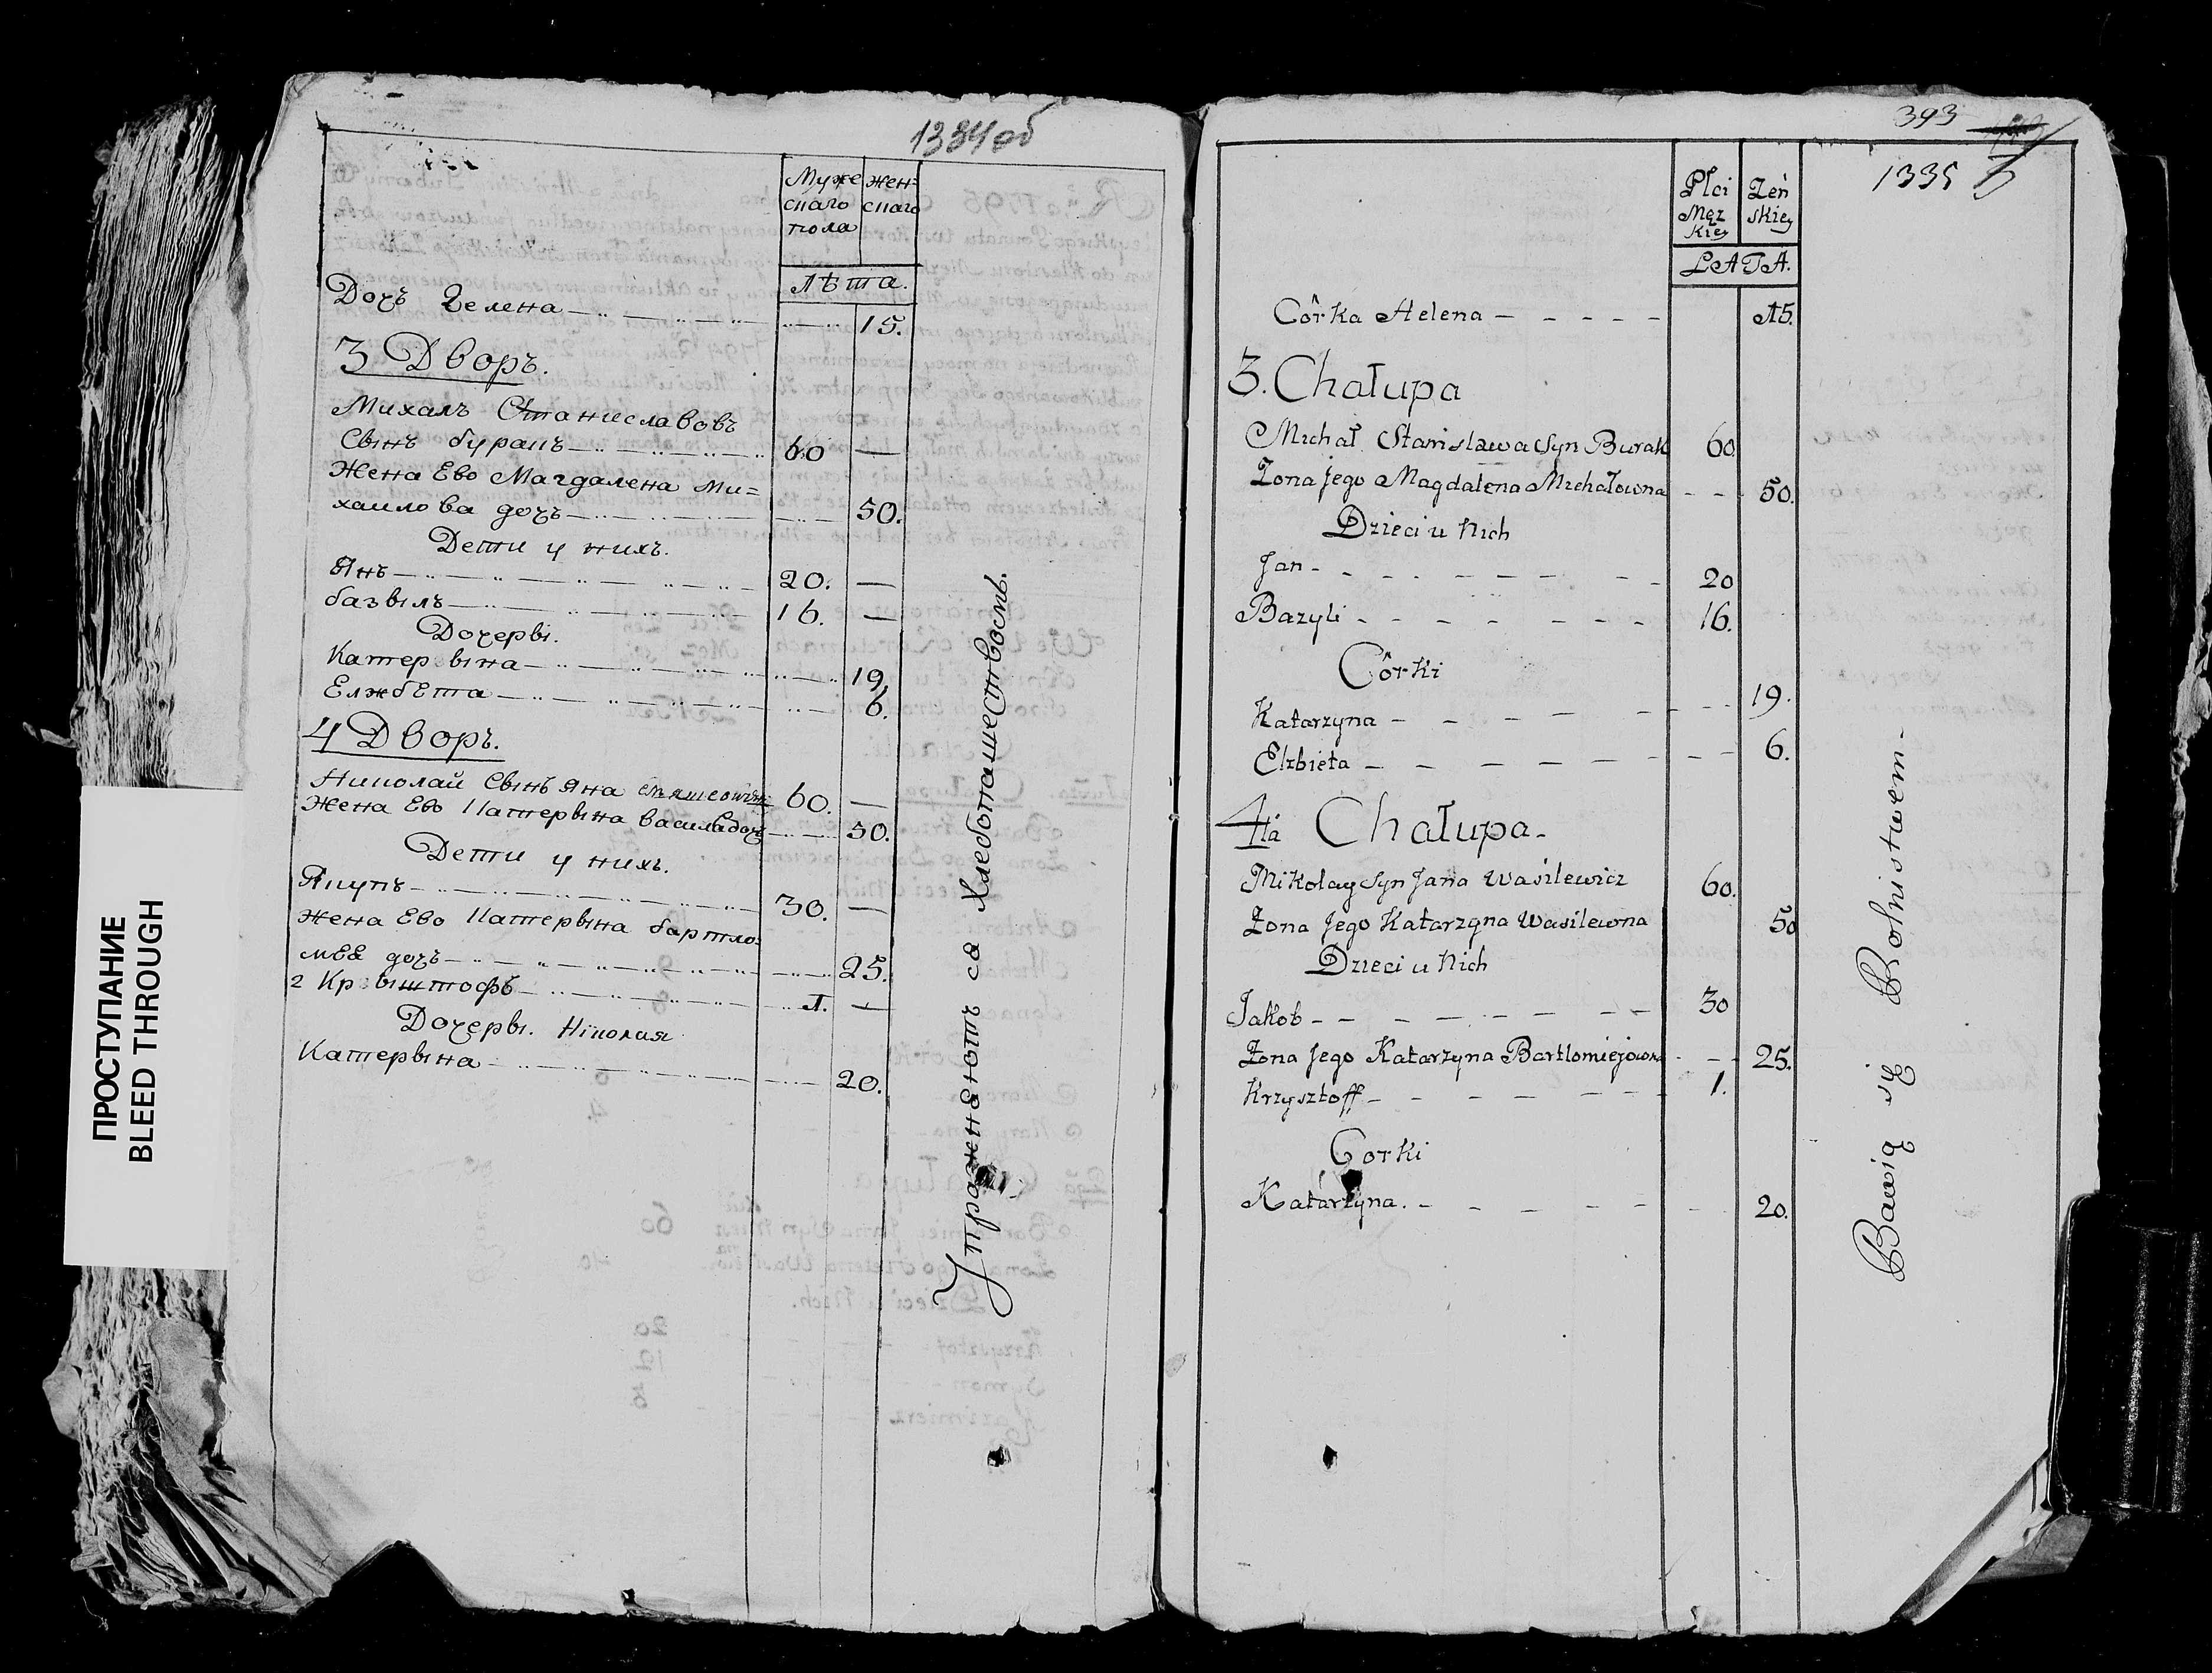 ПРОСТУПАНИЕ
BLEED THROUGH
1334 об
Муже жен=
скаго скаго
пола
Лѣта.
Дочъ Гелена 15.
3 Дворъ.
Михалъ Станиславовъ
Сынъ буракъ 60 —
Жена Ево Магдалена Ми=
хаилова дочъ 50.
Дети у нихъ.
Янъ 20. —
базылъ 16. —
Дочеры.
Катерына 19.
Елжбета 6.
4 Дворъ.
Николай Сынъ Яна 60. —
Жена Ево Катерына василева дочъ 50.
Дети у нихъ.
Якупъ 30. —
Жена Ево Катерына бартло=
мея дочъ 25.
2 Крыштофъ 1. —
Дочеры. Николая
Катерына 20.
Упражнаютъ ся Хлебопашествомъ.
393
1335
Płci Żeń
Męz skiey
kiey
LATA.
Côrka Helena 15.
3. Chałupa
Michał Stanisława Syn Burak 60
Żona Jego Magdalena Michałowna 50.
Dzieci u Nich
Jan 20
Bazyli 16.
Côrki
Katarzyna 19.
Elzbieta 6.
4ta Chałupa
Mikołay Syn Jana Wasilewicz 60.
Żona Jego Katarzyna Wasilewna 50
Dzieci u Nich
Jakob 30
Żona Jego Katarzyna Bartlomiejowna 25.
Krzysztoff 1.
Corki
Katarzyna. 20.
Bawią się Rolnistwem